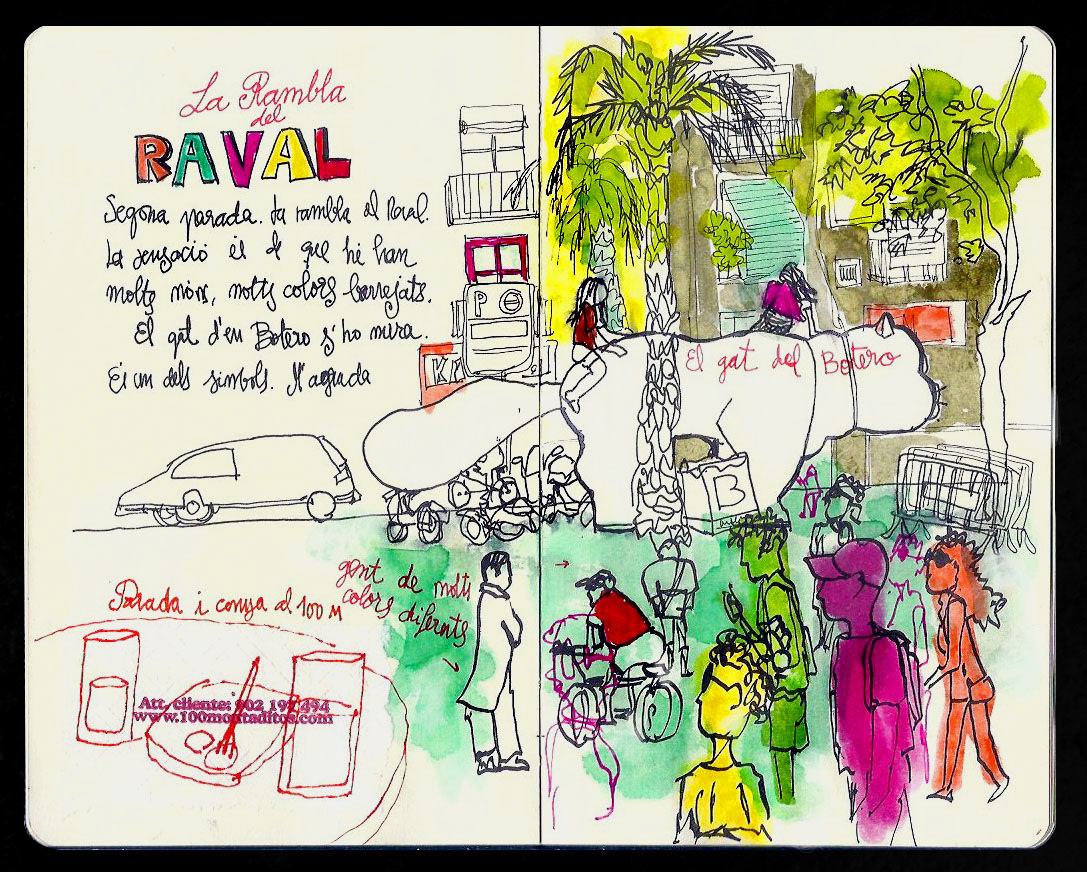 La Rambla
del
RAVAL
Segona parada. La rambla del Raval.
La sensació és de que hi han
molts móns, molts colors barrejats.
El gat d'en Botero s'ho mira.
És un dels simbols. M'agrada
P
KE
El gat del Botero
B
gent de molts
colors diferents
Parada i conya al 100 M
Att. cliente: 902 197 494
www.100montaditos.com